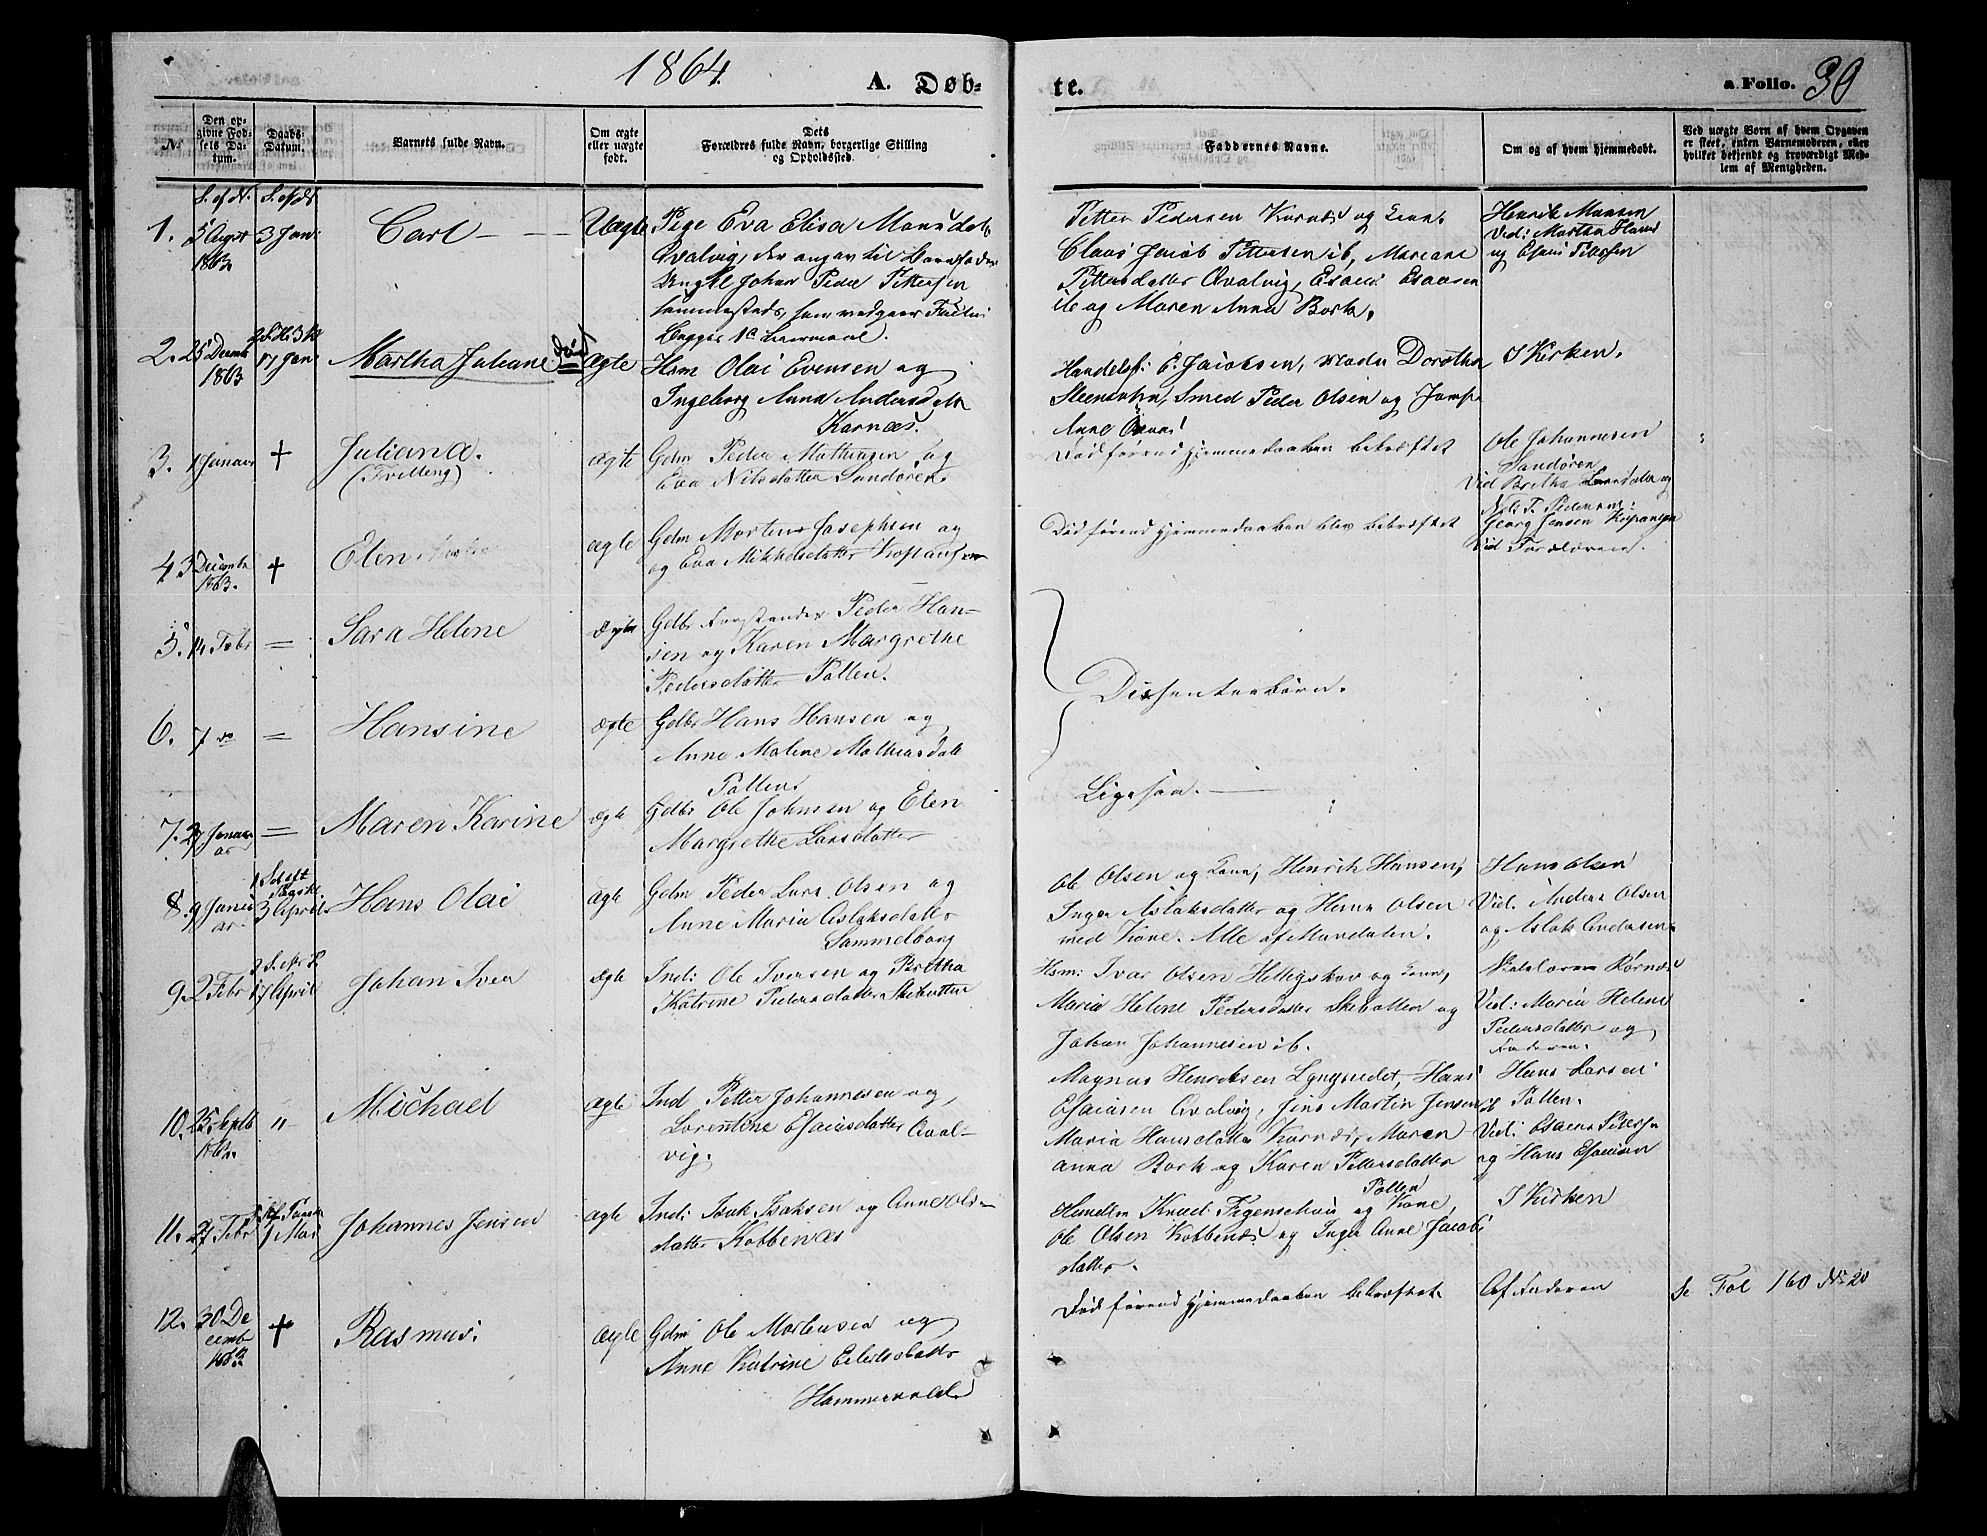 1864.
A. Døb-
te.
a. Folio. 30
No
Den op-
givne Fød-
sels Da-
tum.
Daabs-
Datum.
Barnets fulde Navn.
Om ægte
eller uægte
født.
Dets
Forældres fulde Navn, borgerlige Stilling
og Opholdssted.
Faddernes Navne.
Om og af hvem hjemmedøbt.
Ved uægte Børn af hvem Opgaven
er skeet, enten Barnemoderen, eller
hvilket bekjendt og troværdigt Med-
lem af Menigheden.
1.
5 August
1863
3 Jan:
Carl
Uægte
Pige Eva Elisa Monsdatt
Qvalvig, der angav til Barnefader
Ungkl Johan Peder Pettersen
sammesteds, som vedgaaer Faderen
Begges 1ste Leiermaal.
Petter Pedersen Karnæs og Kone,
Claus Jacob Pettersen ib, Mariane
Pettersdatter Qvalvig, Esaias Esaasen
ib og Maren Anna Bork.
Henrik Monsen
Vid: Martha Hansd
og Esaias Petersen
2.
25 Decemb
1863
17 Jan
Martha Juliane
ægte
Hsm Olai Evensen og
Ingeborg Anna Andersdatr
Karnæs.
Handelsf: E. Jacobsen, Madm Dorothea
Steensohn, Smed Peder Olsen og Jomfr
Anne
I Kirken.
3.
1 Januar
+
Juliana.
(Tvilling)
ægte
Gdm Peder Mathisen og
Eva Nilsdatter Sandøren.
Død førend Hjemmedaaben bekræftet
Ole Johannesen
Sandøren
Vid Bretha Larsdatter og
Nils P. Pedersen
4.
3 Decembr
1863.
+
Elen
ægte
Gdm Morten Josephsen og
og Eva Mikkelsdatter
Død førend Hjemmedaaben blev bekræftet
Georg Jensen
Vid Forældrene.
5.
14 Febr
=
Sara Helene
Ægte
Gdbr Forstander Peder Han-
sen og Karen Margrethe
Pedersdatter Pollen.
Dissenterbørn.
6.
7 do
=
Hansine
Ægte
Gdbr Hans Hansen og
Anne Malene Mathiasdatt
Pollen
7.
27 Janu
ar
=
Maren Karine
ægte
Gdbr Ole Johnsen og Elen
Margrethe Larsdatter
Ligesaa.
8.
9 Janu
ar.
1 S. eft
Paaske
3 April
Hans Olai
ægte
Gdm Peder Lars Olsen og
Anne Maria Aslaksdatter
Sammelbong
Ole Olsen og Kone, Henrik Hansen,
Inger Aslaksdatter og Hans Olsen
med Kone. Alle af Mandalen.
Hans Olsen
Vid. Anders Olsen
og Aslak Andersen
9.
2 Febr
17 April
Johan Iver
ægte
Ind: Ole Iversen og Bretha
Katrine Pedersdatter Skibotten
Hsm: Ivar Olsen Helligskov og Kone,
Maria Helene Pedersdatter Skibotten og
Johan Johannesen ib.
Skolelærer Kornæs
Vid: Maria Helene
Pedersdatter og
Faderen.
10.
25 Septb
"
Michael
ægte
Ind Petter Johannesen og,
Lorentine Esaiasdatter Qval-
vig.
Magnus Henriksen Lyngseidet, Hans
Esaiasen Qvalvig, Jens Martin Jensen ib
Maria Hansdatter Karnæs, Maren
Anna Bork og Karen Pettersdatter
Pollen
Hans Larsen
Pollen.
Vid: Esaias Petersen
og Hans Esaiasen
11.
27 Febr
1 Mai
Johannes Jensen
ægte
Ind: Isak Isaksen og Anne Ols-
datter Kobbenæs
Handlm Knud Figenschou og Kone
Ole Olsen Kobbenæs og Inger Anne Jacobs
datter.
I Kirken
12.
30 De
cembr
1863
+
Rasmus.
ægte
Gdm Ole Mortensen og
Anne Katrine Eilertsdatter
Hammervold
Død førend Hjemmedaaben bekræftet.
Af Faderen
Se Fol 160 No 20